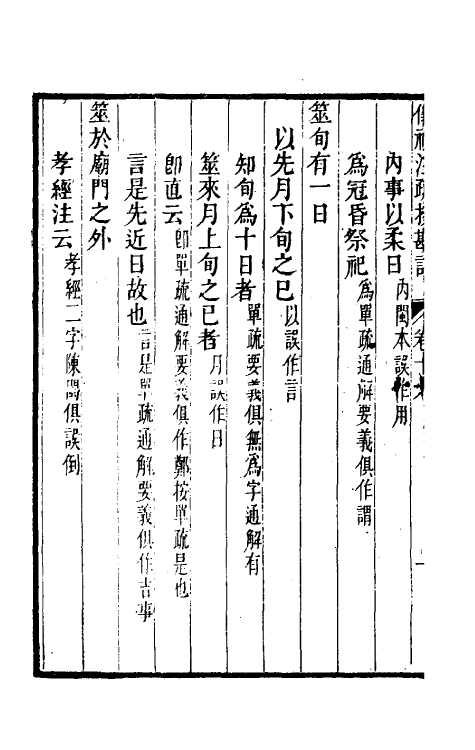 儀禮注疏挍勘記 卷十六 一
內事以柔日內閩本誤作用
爲冠昏祭祀爲單疏通解要義俱作謂
筮旬有一日
以先月下旬之巳以誤作言
知旬爲十日者單疏要義俱無爲字通解有
筮來月上旬之巳者月誤作日
卽直云卽單疏通解要義俱作鄭按單疏是也
言是先近日故也言是單疏通解要義俱作吉事
筮於廟門之外
孝經注云孝經二字陳閩俱誤倒